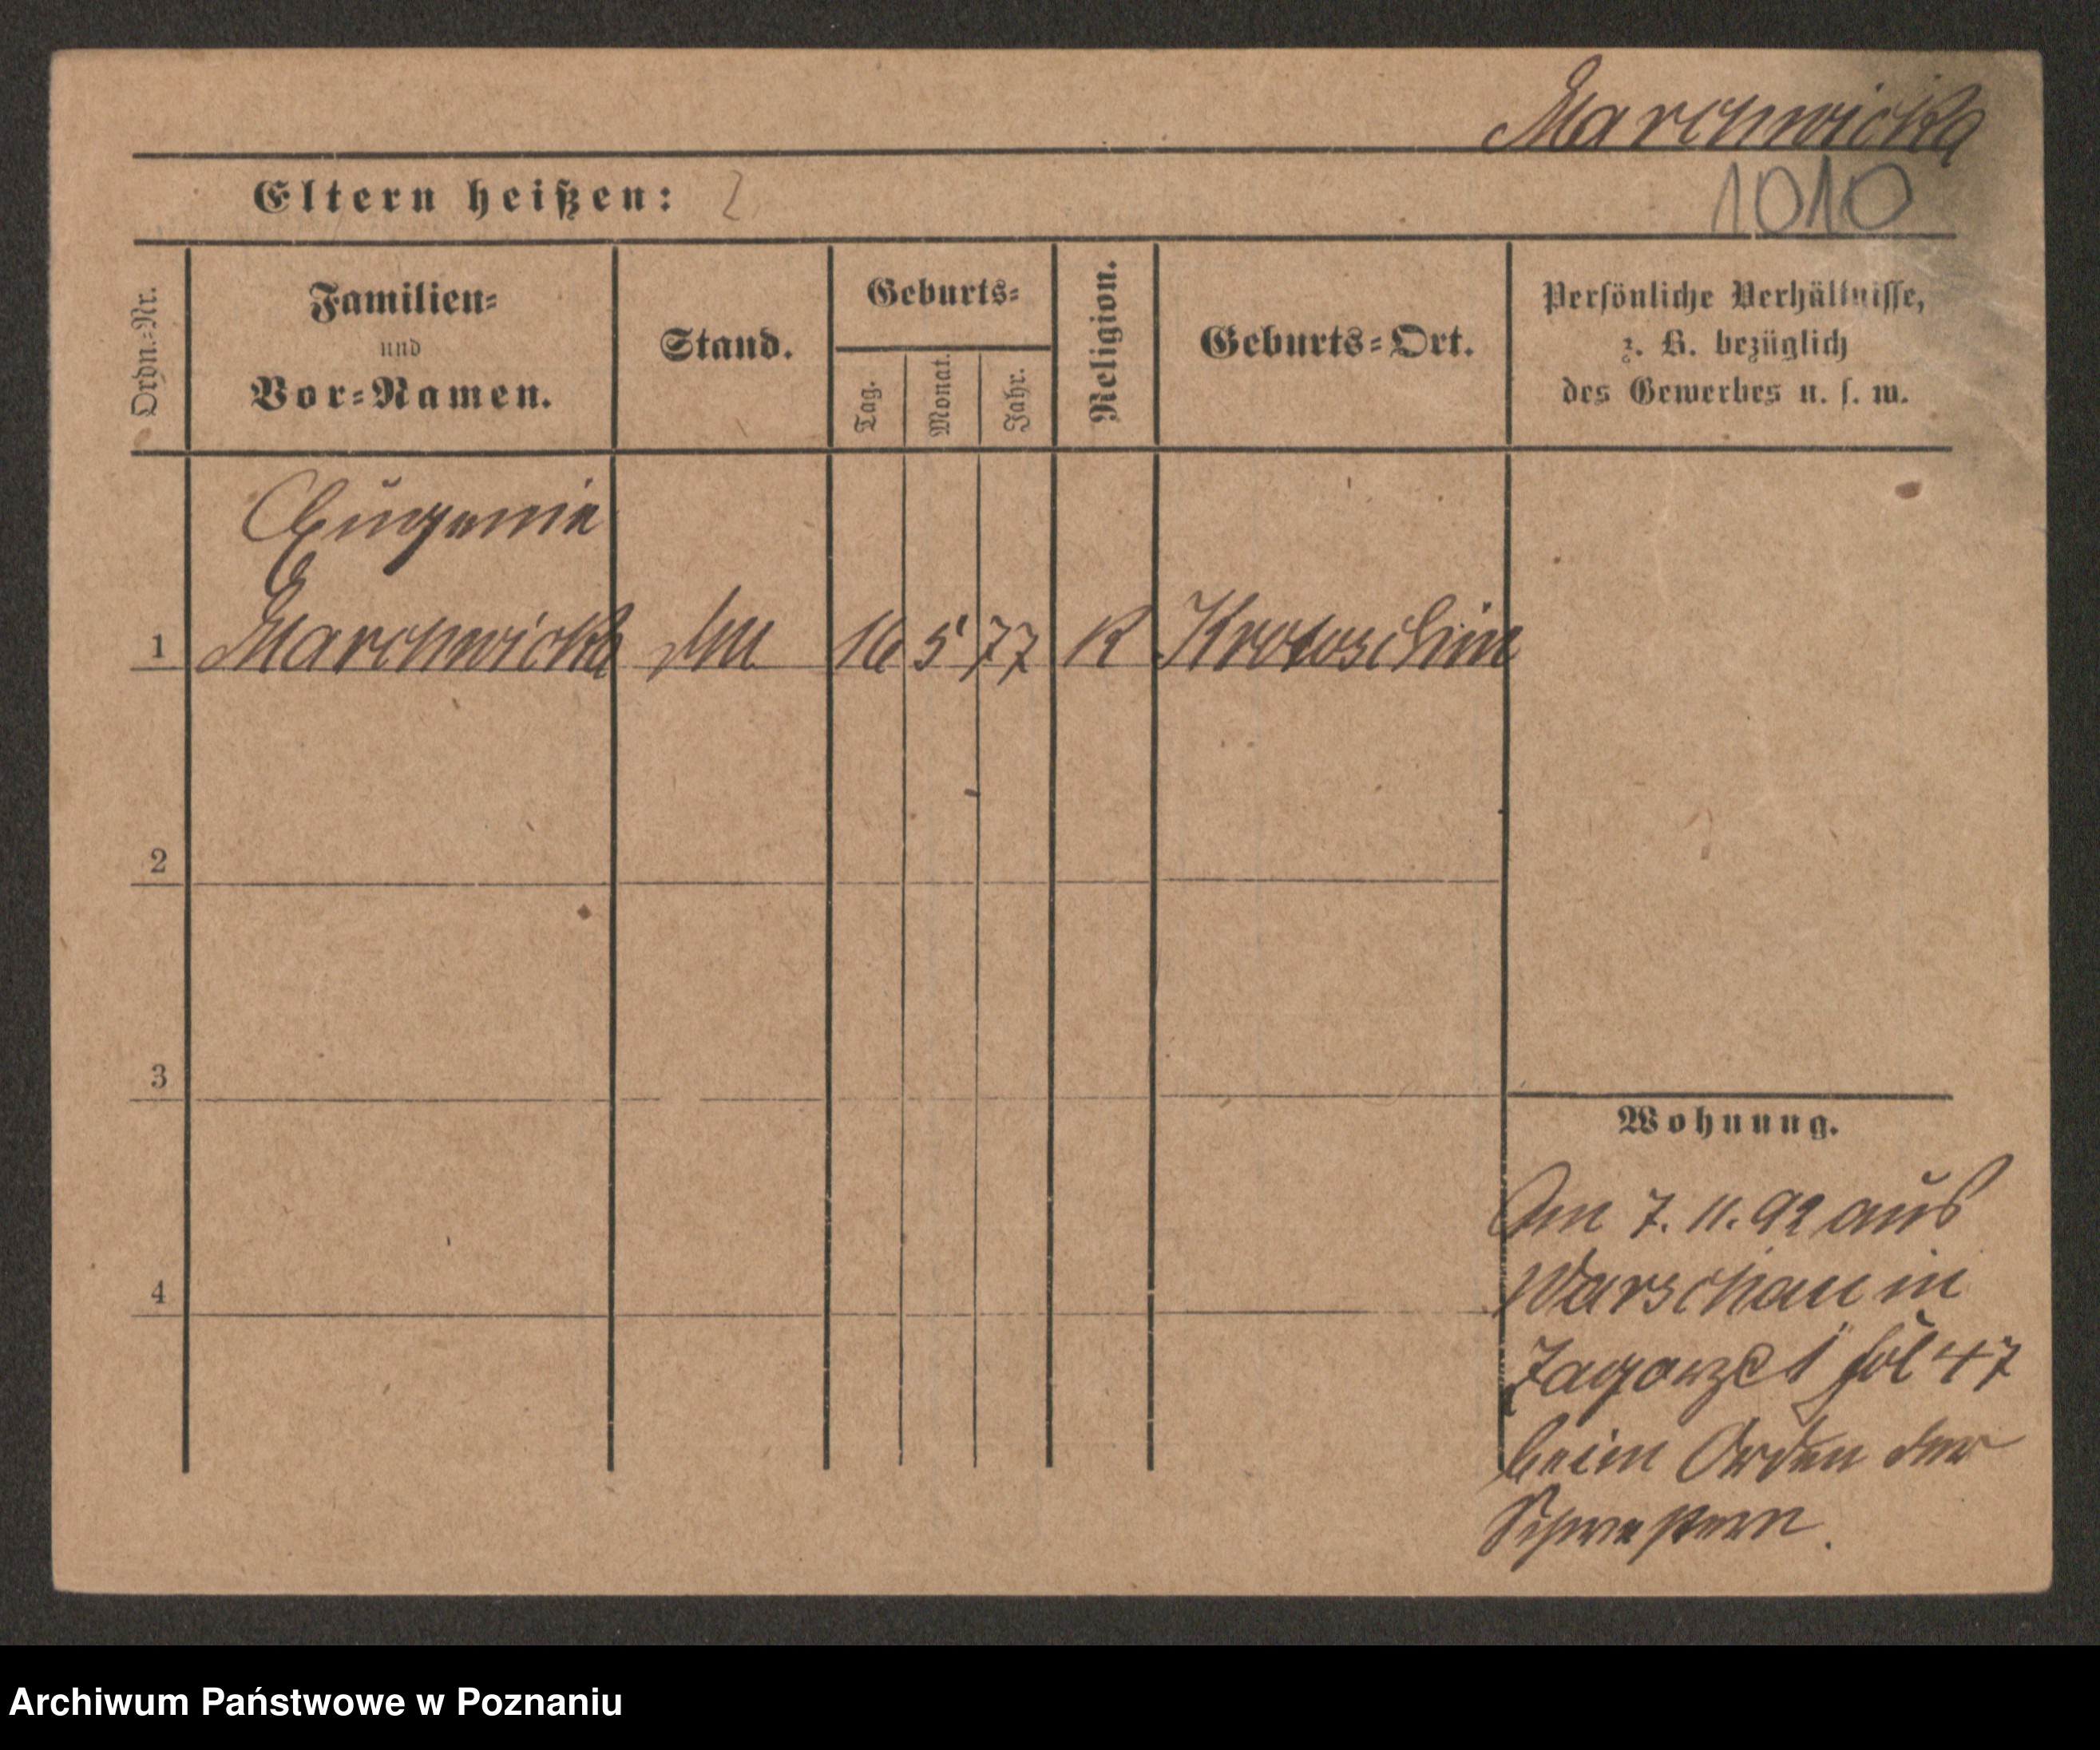 Marchwicka
Eltern heißen: 2
1010
Ordn.-Nr.
Familien-
und
Vor-Namen.
Stand.
Geburts-
Tag.
Monat.
Jahr.
Religion.
Geburts-Ort.
Persönliche Verhältnisse,
z. B. bezüglich
des Gewerbes u. s. w.
Eugenie
1 Marchwicka 16 5 77 K Krotoschin
2
3
4
Wohnung.
Am 7. 11. 92 aus
Warschau in
47
beim Orden der
Schwestern.
Archiwum Państwowe w Poznaniu